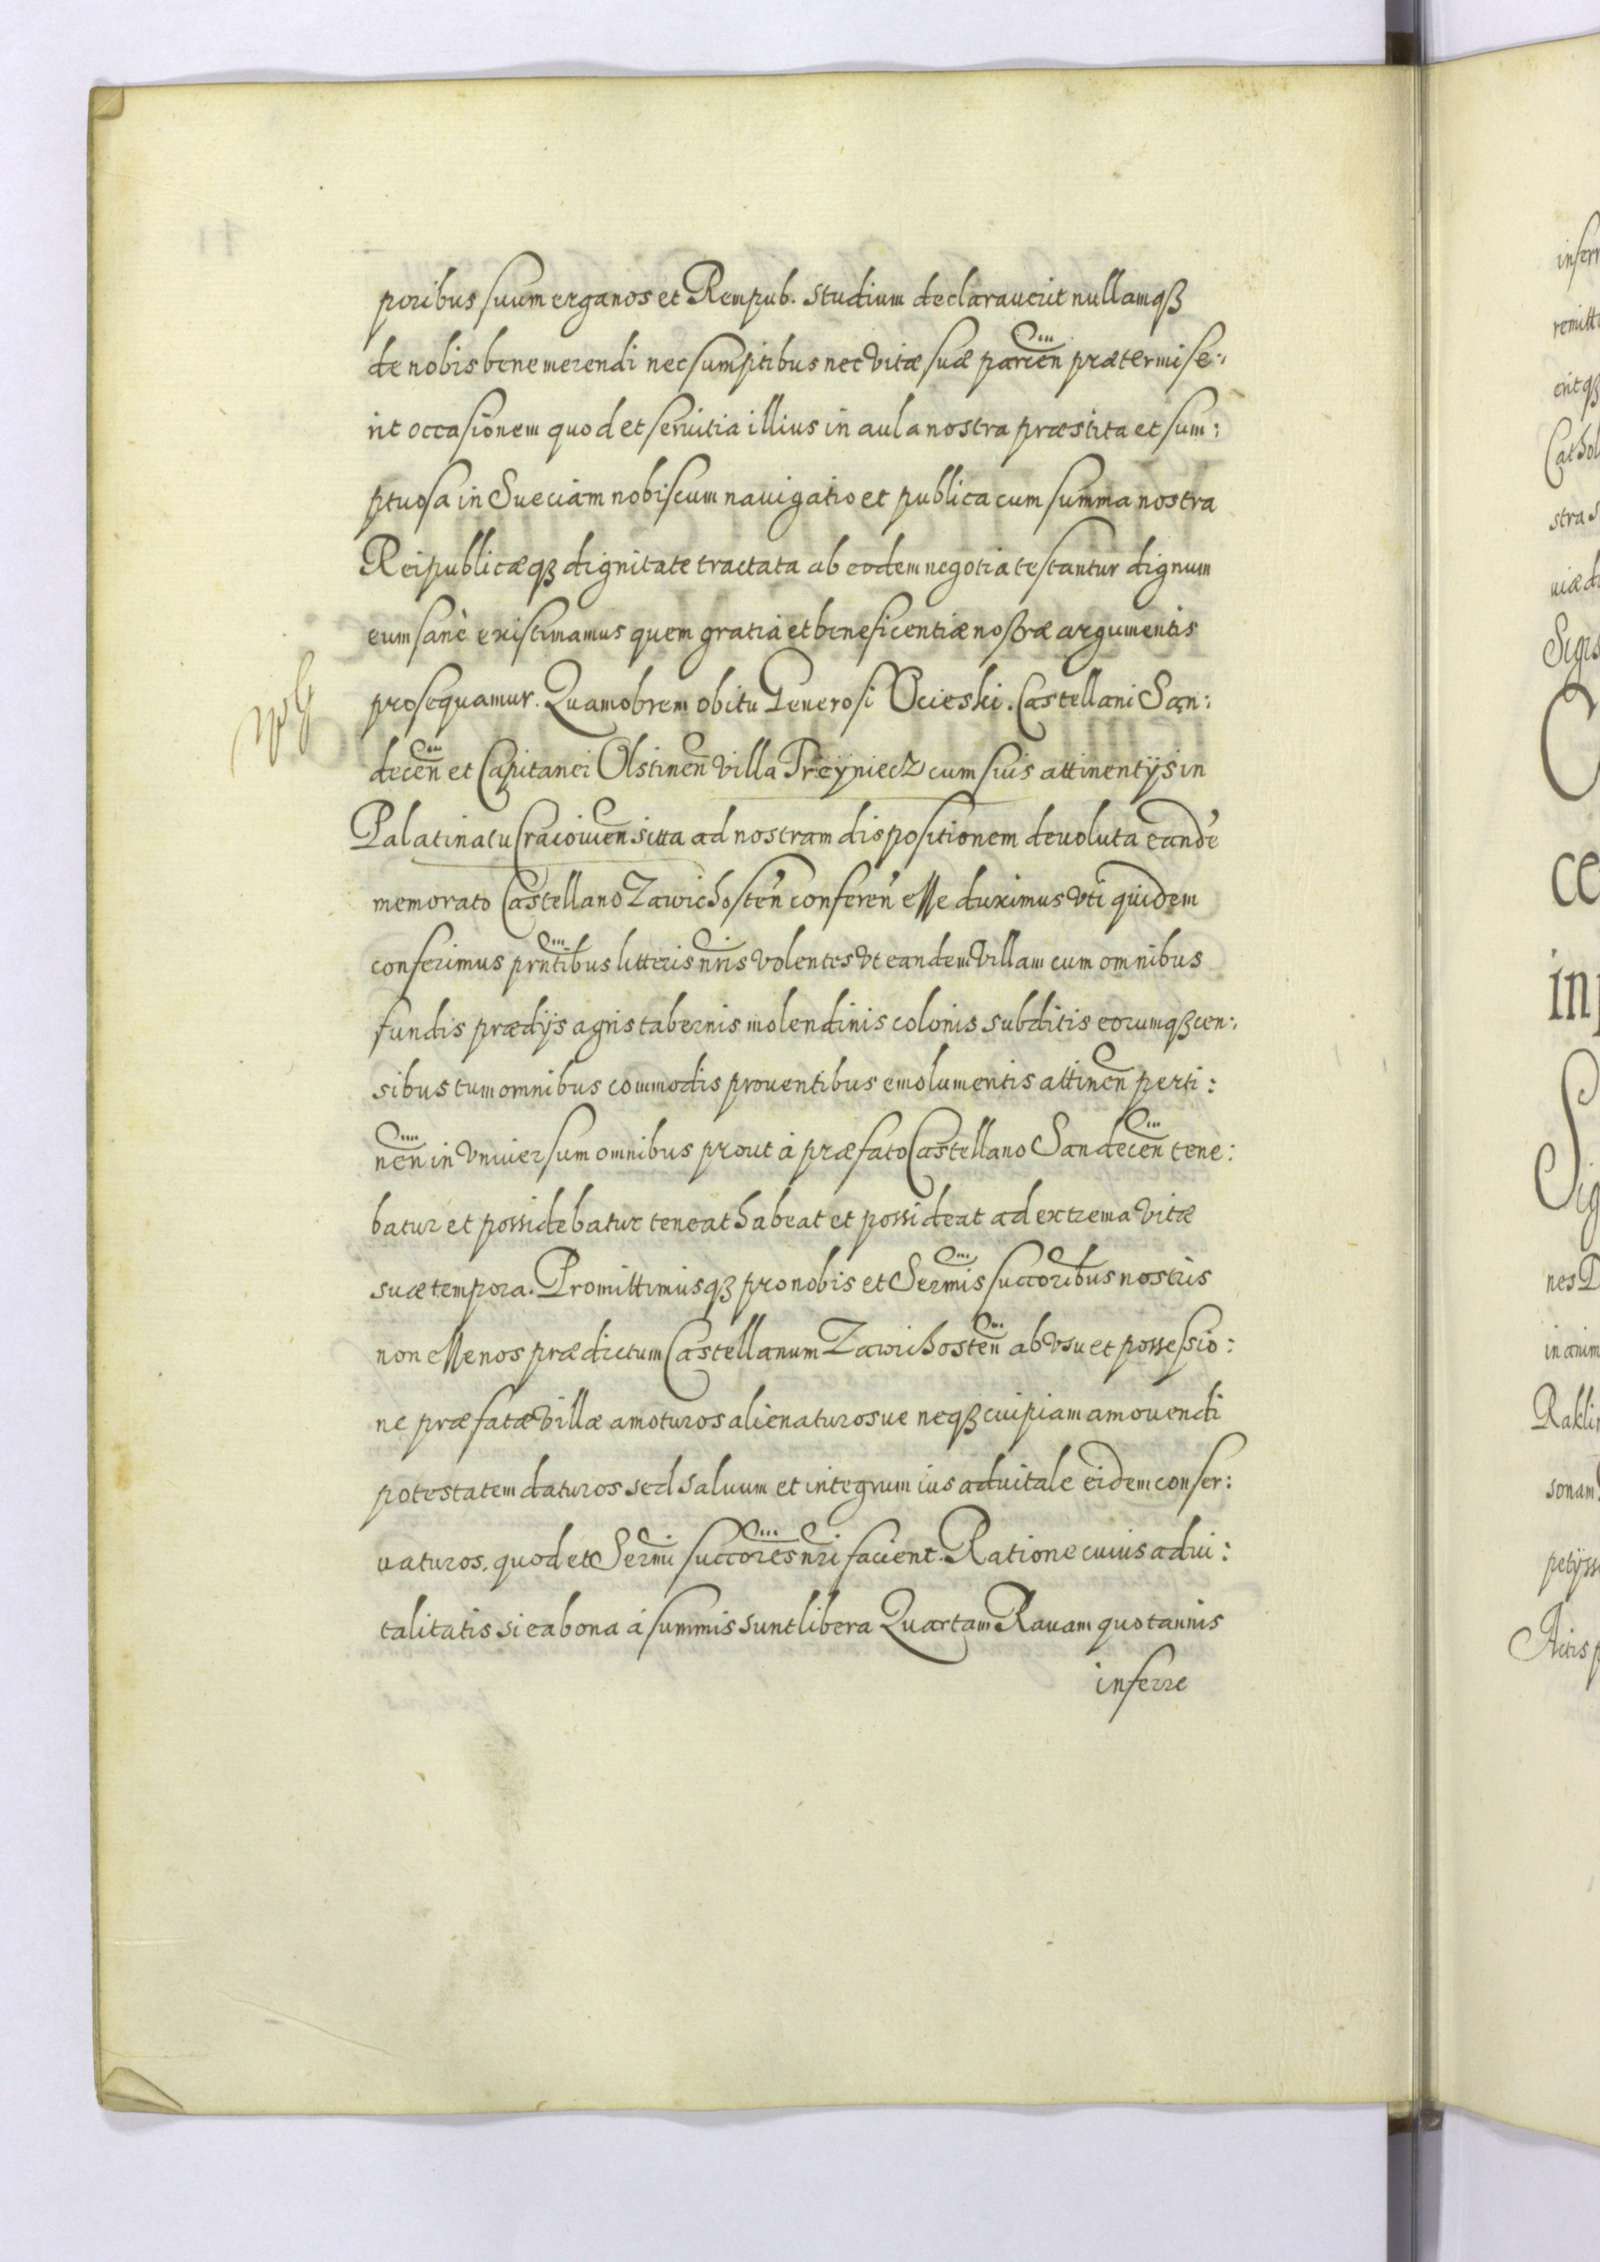 poribus suum erga nos et Rempub. studium declarauerit nullamqȝ
de nobis bene merendi nec sumptibus nec vitæ suæ parcen̄ prætermise:
rit occasionem quod et seruitia illius in aula nostra præstita et sum:
ptuosa in Sueciam nobiscum nauigatio et publica cum summa nostra
Reipublicæqȝ dignitate tractata ab eodem negotia testantur dignum
eum sanè existimamus quem gratiâ et beneficentiæ nostræ argumentis
prosequamur. Quamobrem obitu Generosi Ocieski. Castellani San:
decen̄ et Capitanei Olstinen̄ villa Preyniecz cum suis attinentijs in
Palatinatu Cracouien̄ sitta ad nostram dispositionem deuoluta eandē
memorato Castellano Zawichosten̄ conferen̄ esse duximus vti quidem
conferimus prn̄tibus litteris nr̄is volentes vt eandem villam cum omnibus
fundis prædijs agris tabernis molendinis colonis subditis eorumqȝ cen:
sibus tum omnibus commodis prouentibus emolumentis attinen̄ perti:
nen̄ in vniuersum omnibus prout à præfato Castellano Sandecen̄ tene:
batur et possidebatur teneat habeat et possideat ad extrema vitæ
suæ tempora. Promittimusqȝ pro nobis et Serm̄is succorib̄us nostris
non esse nos prædictum Castellanum Zawichosten̄ ab vsu et possessio:
ne præfatæ villæ amoturos alienaturosue neqȝ cuipiam amouendi
potestatem daturos sed saluum et integrum ius aduitale eidem conser:
uaturos. quod et Serm̄i succores̄ nr̄i facient. Ratione cuius adui:
talitatis si ea bona à summis sunt libera Quartam Rauam quotannis
inferre